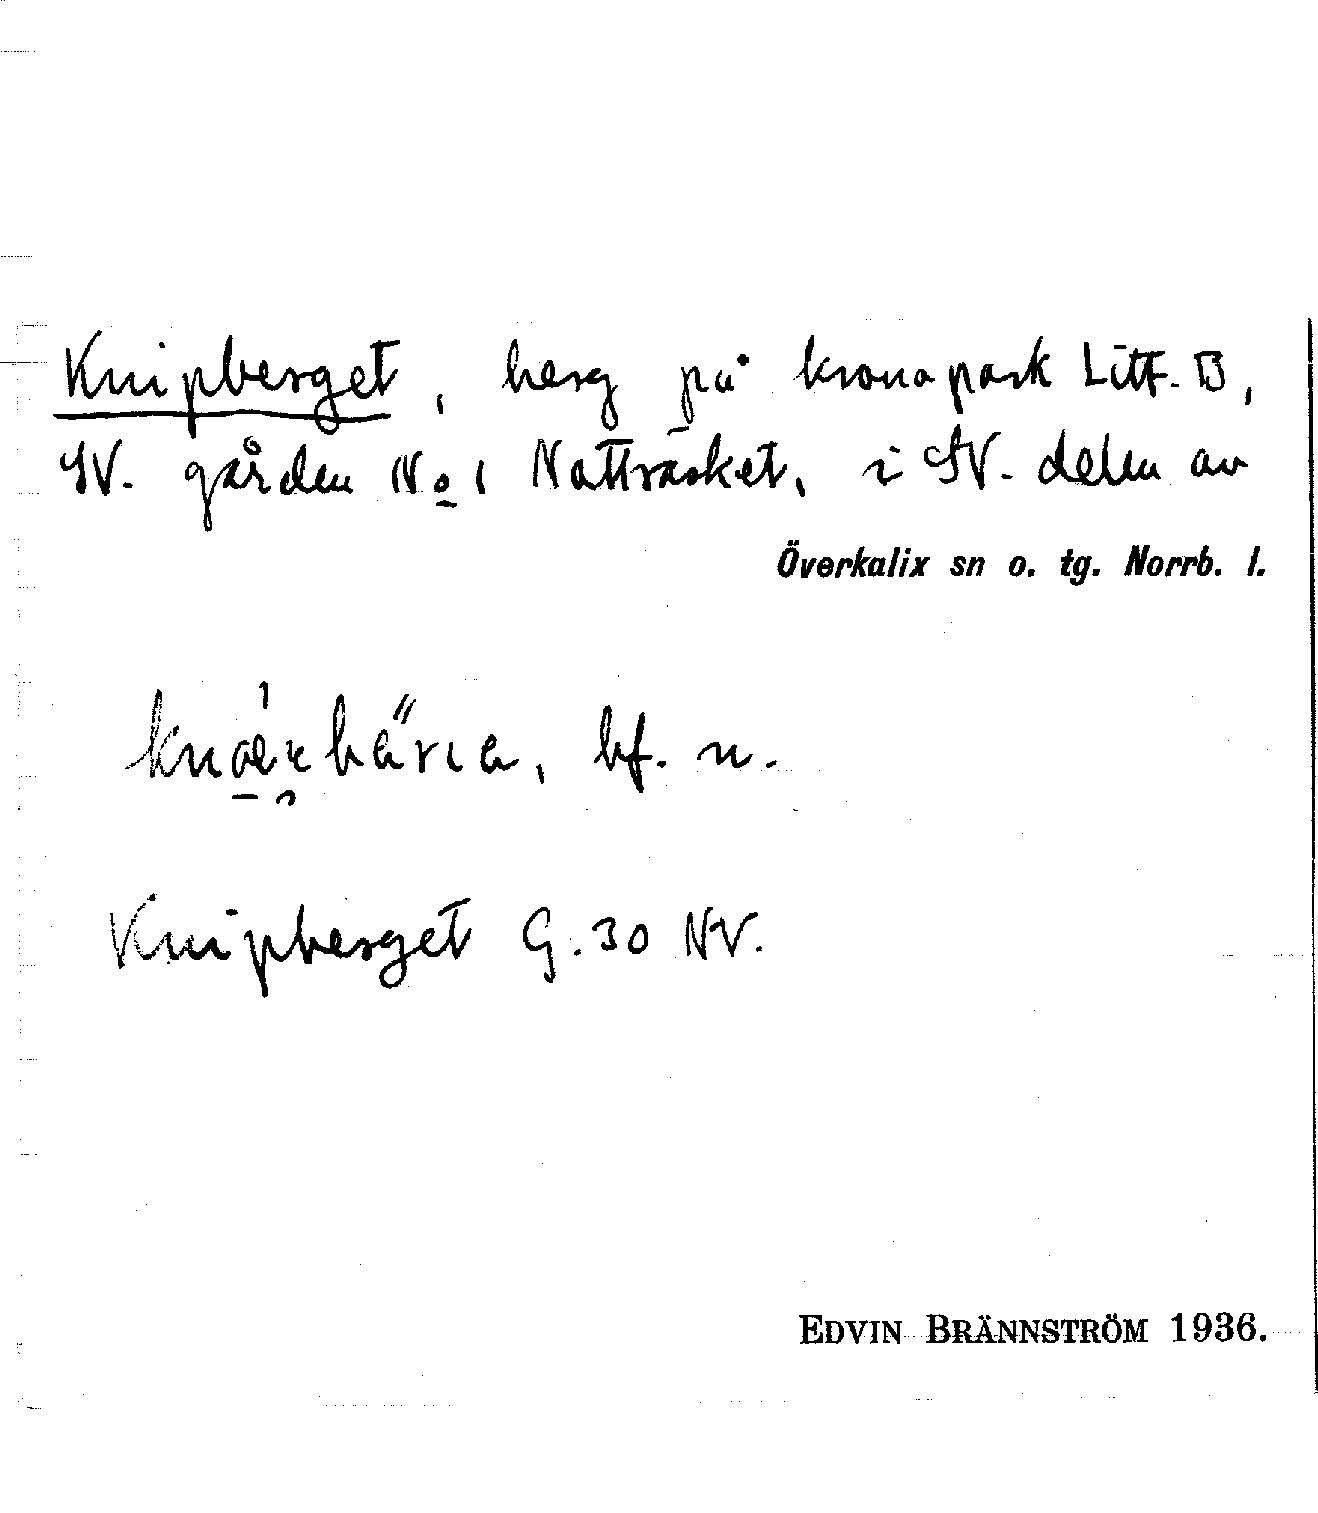 Knipberget, berg på kronopark Litt. B,
SV. gården No 1 Natträsket, i SV. delen av
Överkalix sn o. tg. Norrb. l.
bf. n.
Knipberget G.30 NV.
EDVIN BRÄNNSTRÖM 1936.